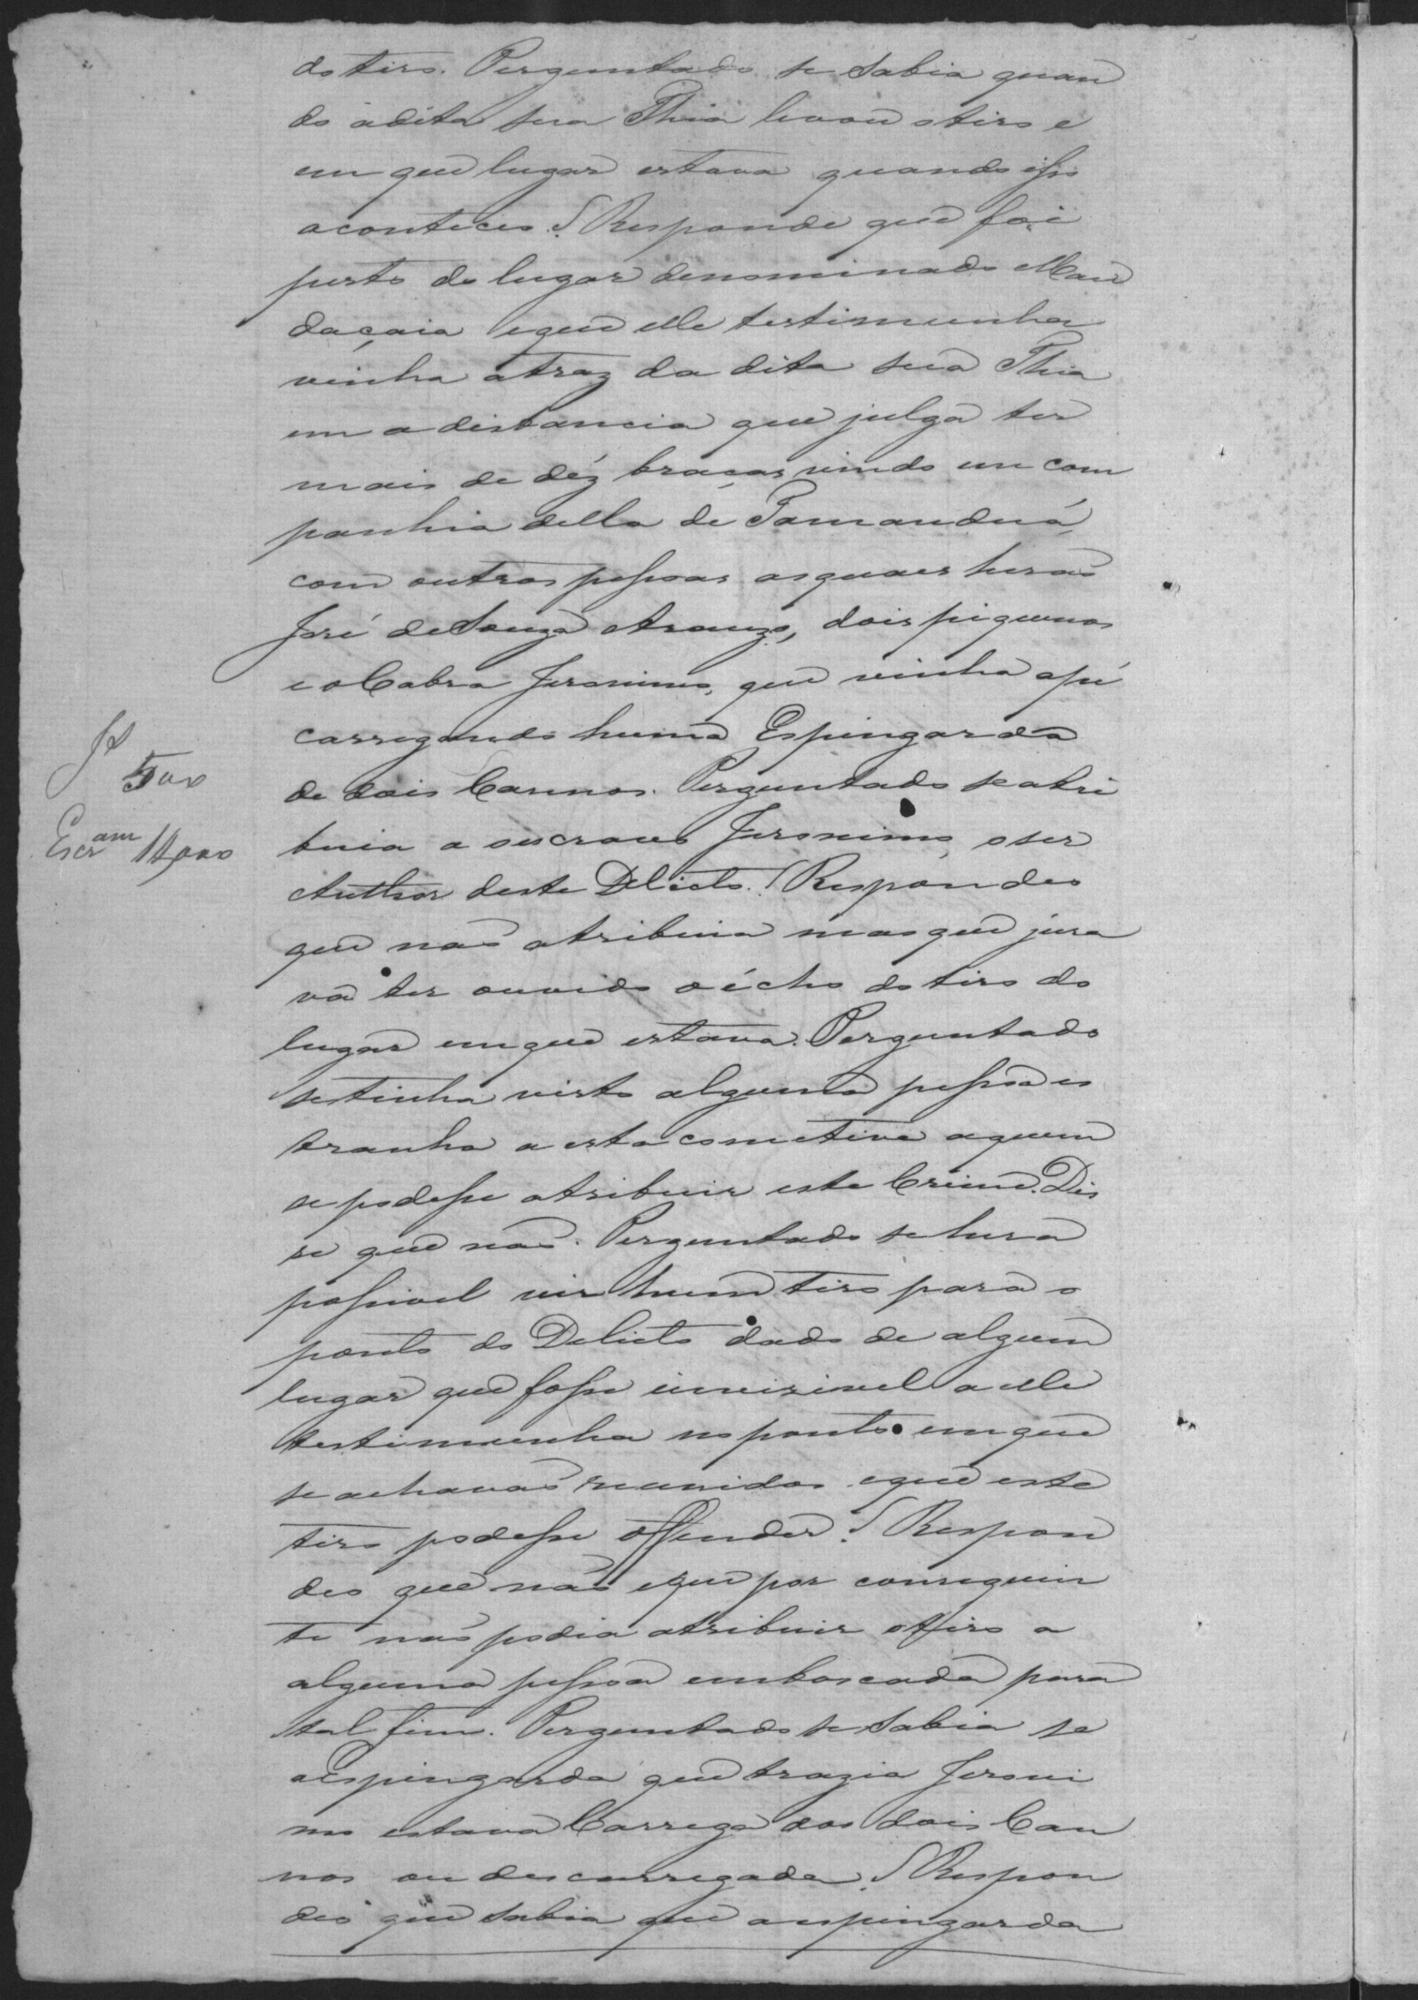 do tiro. Perguntado se sabia quan
do adita sua Thia levou o tiro e
em que lugar estava quando isso
aconteceo? Responde que foi
perto do lugar denominado Man
daçaia eque elle testimunha
vinha atraz da dita sua Thia
em a distancia que julga ter
mais de déz braças vindo em com
panhia della de Tamanduá,
com outras pessoas asquaes heraõ
José deSouza Araujo, dois piquenos
e oCabra Jeronimo, que vinha apé
carregando huma Espingarda
de dois Cannos. Perguntado seatri
buia a oescravo Jeronimo, o ser
Author deste Delicto? Respondeo
que naõ atribuia mas que jura
va ter ouvido o écho do tiro do
lugar emque estava. Perguntado
setinha visto alguma pessoa es
tranha a esta cometiva aquem
se podesse atribuir este Crime. Dis
se que naõ. Perguntado se hera
possivel vir hum tiro para o
ponto do Delicto dado de algum
lugar que fosse invizivel a elle
testimunha no ponto emque
se achavaõ reunidos eque este
tiro podesse offender? Respon
deo que naõ eque por conseguin
te naõ podia atribuir o tiro a
alguma pessoa emboscada para
tal fim. Perguntado se sabia se
aespingarda que trazia Jeroni
mo estava Carrega dos dois Can
nos ou descarregada? Respon
deo que sabia que aespingarda
Jt
500
Escram 1$000